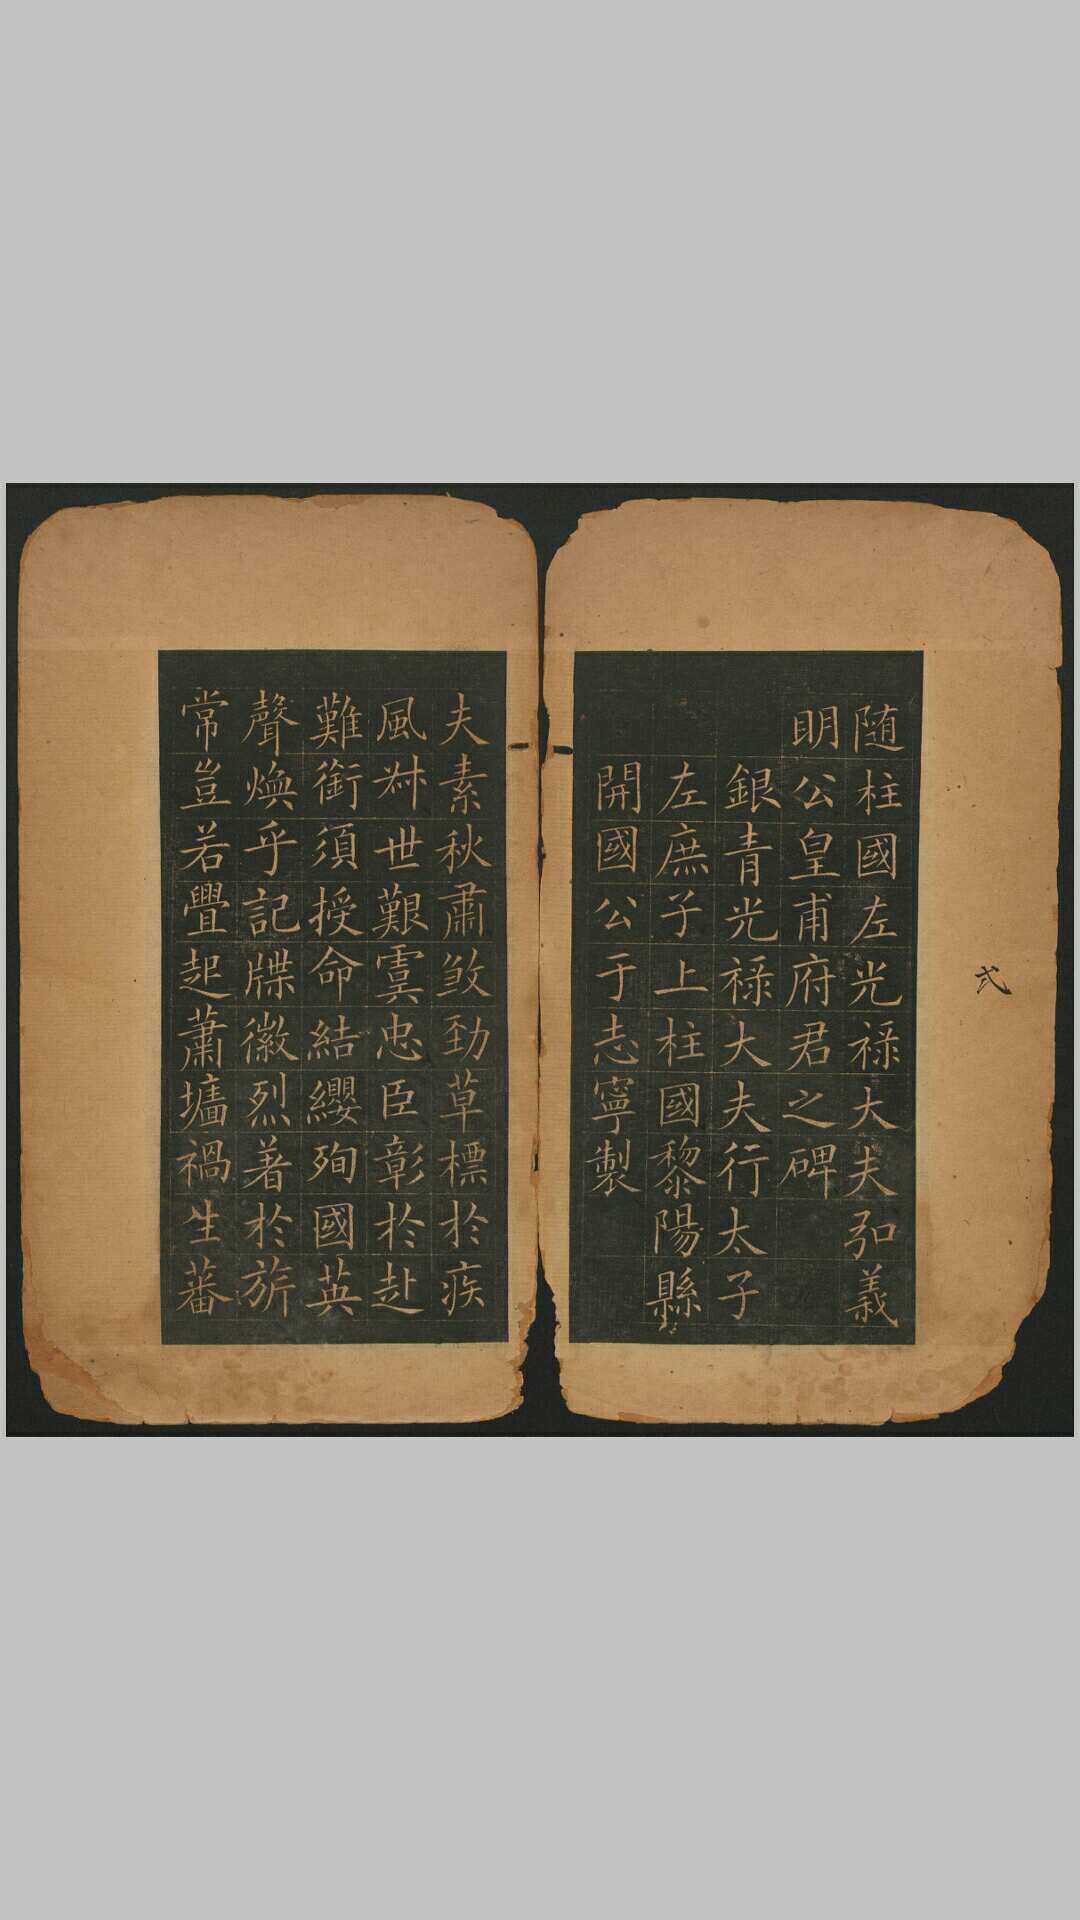 随柱國左光禄大夫弘義
明公皇甫府君之碑
銀青光禄大夫行太子
左庶子上柱國黎陽縣
開國公于志寧製
弍
夫素秋肅煞勁草標於疾
風叶世艱虞忠臣彰於赴
難銜須授命結纓殉國英
聲煥乎記牒徽烈著於旂
常豈若釁起蕭墻禍生蕃